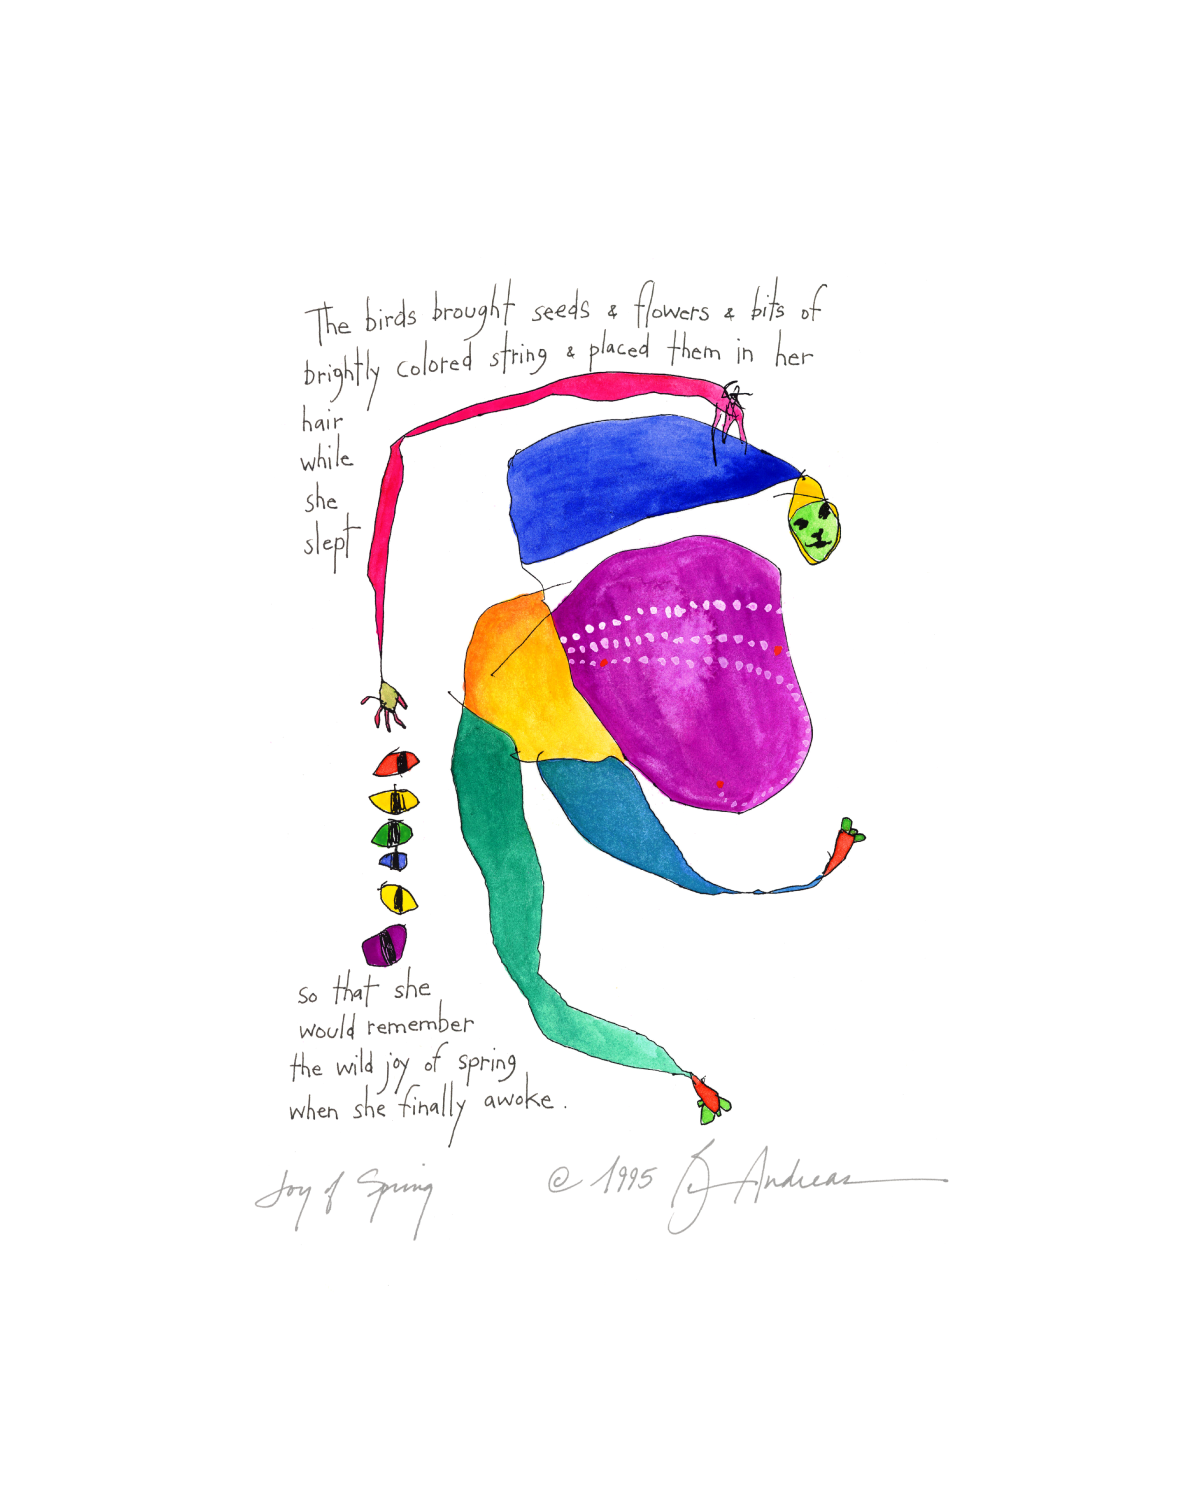 The birds brought seeds & flowers & bits of
brightly colored string & placed them in her
hair
while
she
slept
so that she
would remember
the wild joy of spring
when she finally awoke.
Joy of Spring
© 1995 Andreas